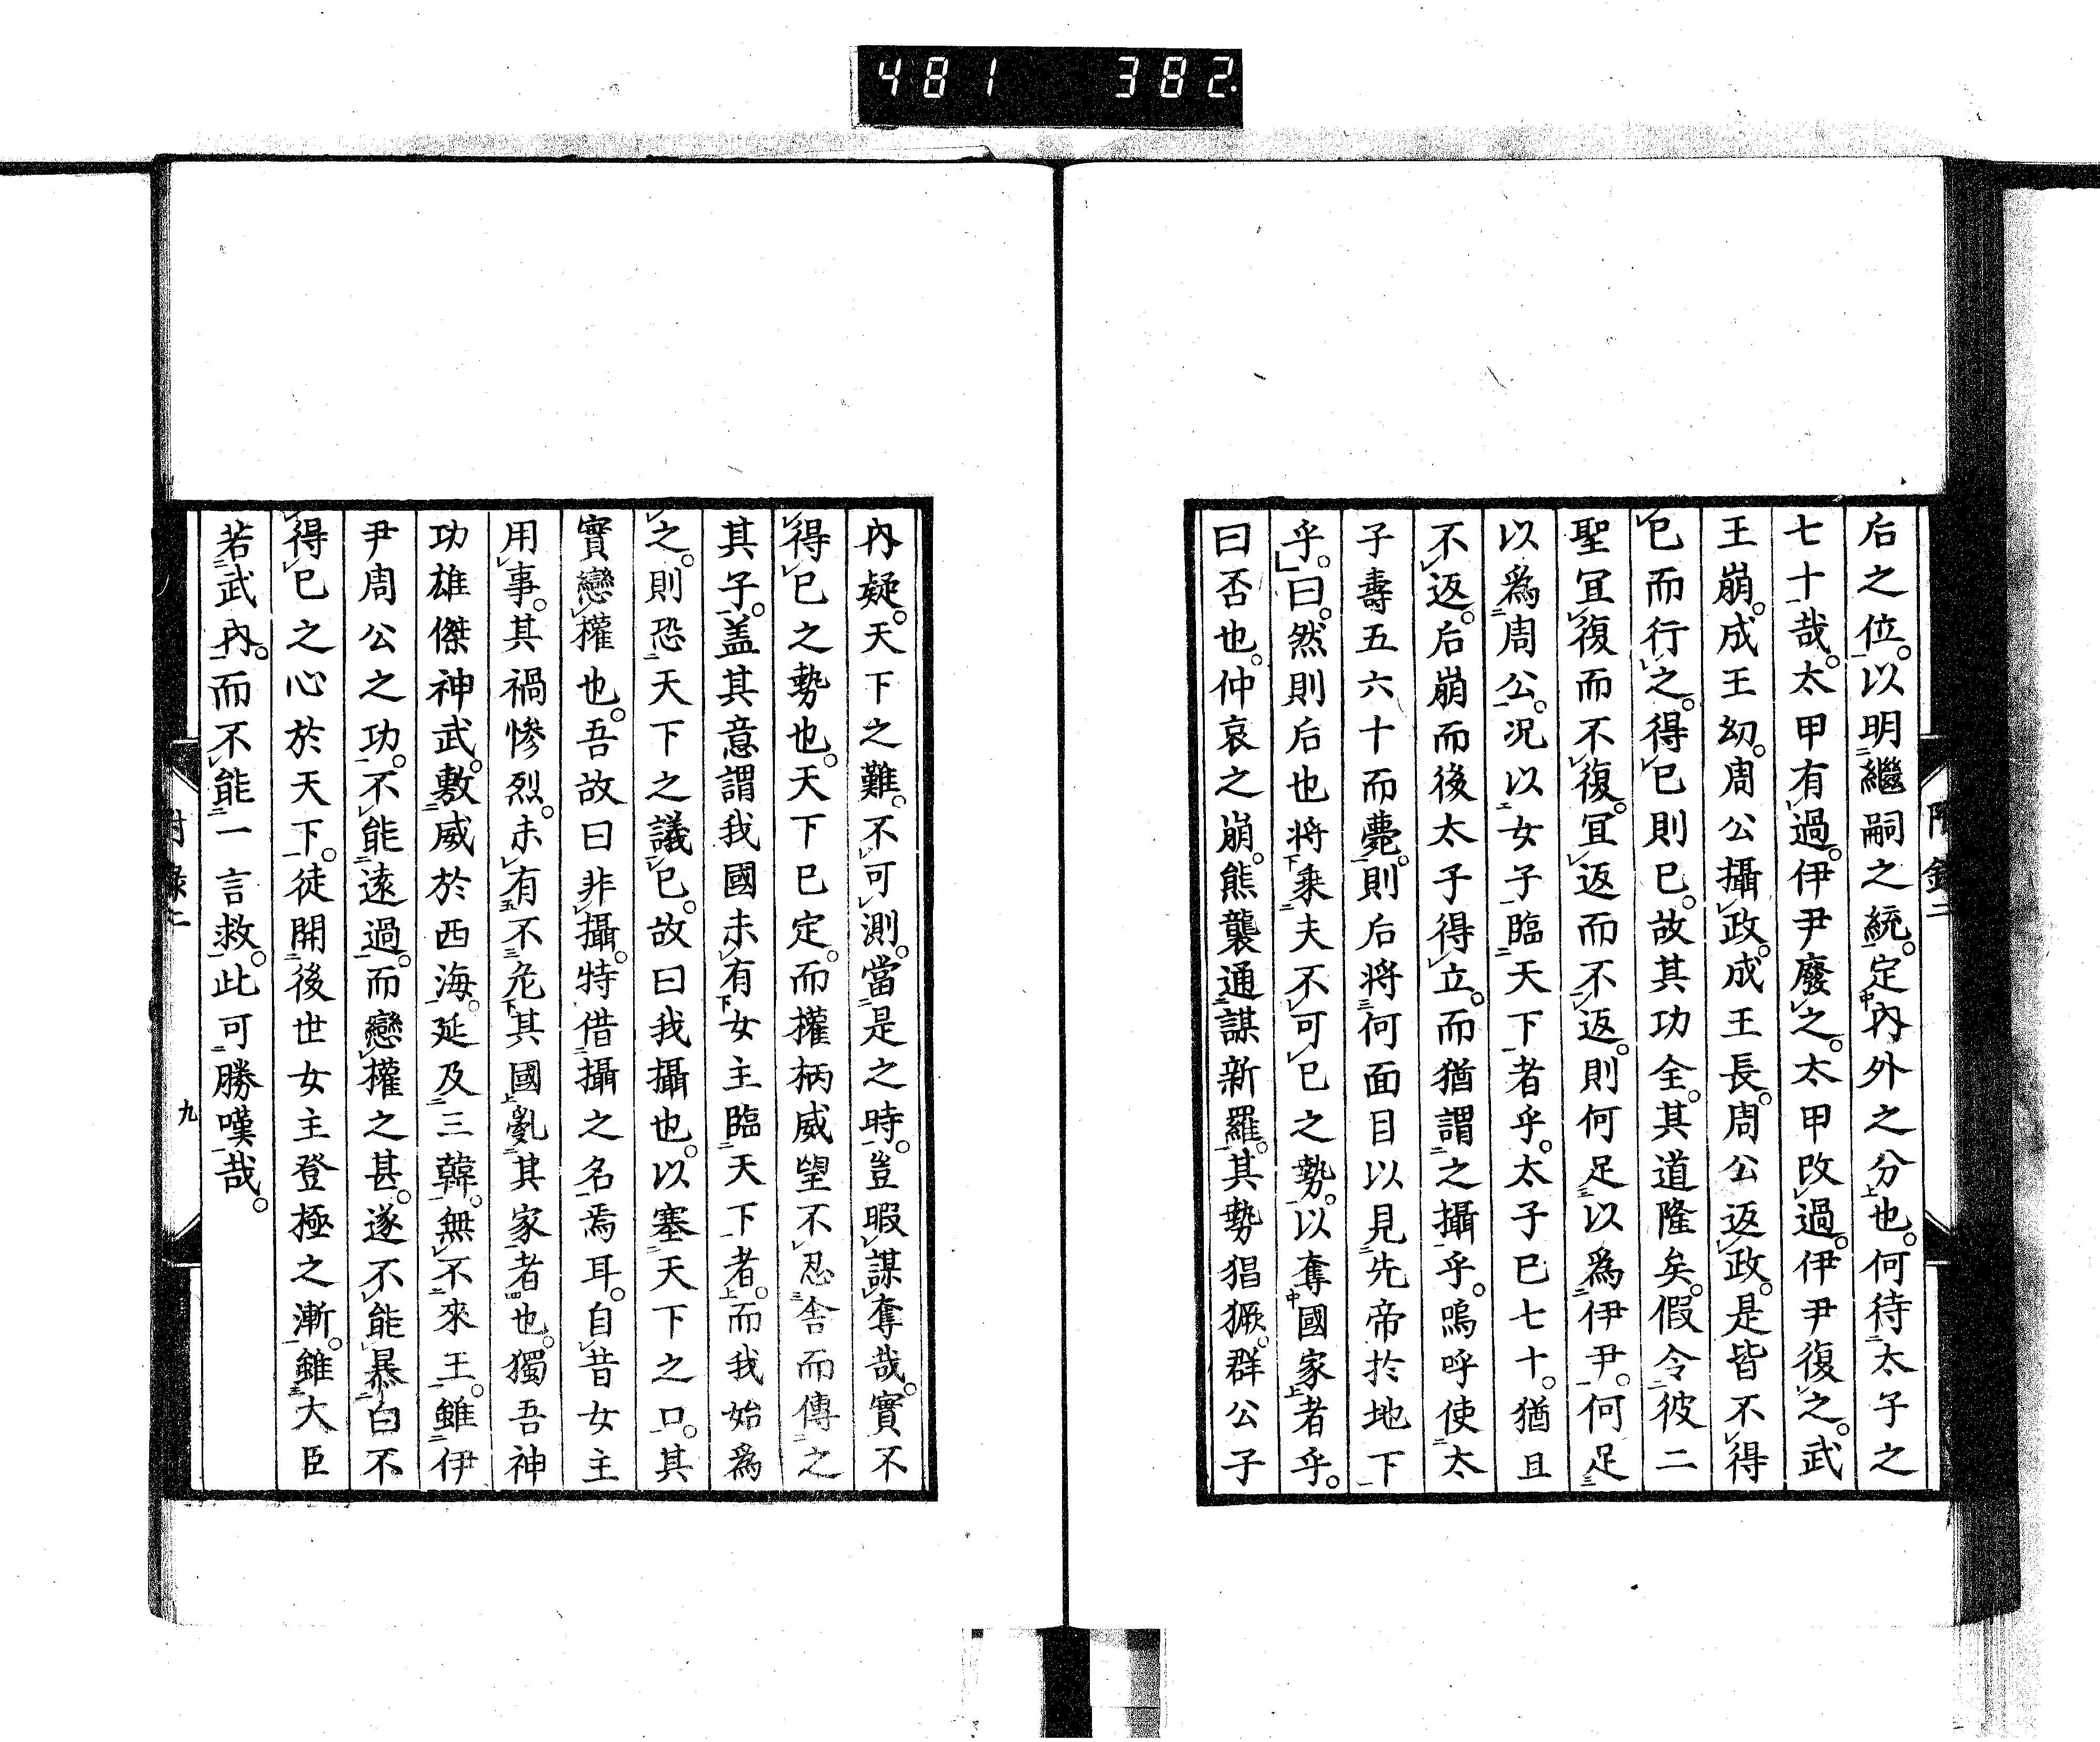 481 382.
后之位。以明繼嗣之統。定內外之分也。何待太子之
七十哉。太甲有過。伊尹廢之。太甲改過。伊尹復之。武
王崩。成王幼。周公攝政。成王長。周公返政。是皆不得
已而行之。得已則已。故其功全。其道隆矣。假令彼二
聖冝復而不復。冝返而不返。則何足以爲伊尹。何足
以爲周公。况以女子臨天下者乎。太子已七十。猶且
不返。后崩而後太子得立。而猶謂之攝乎。嗚呼使太
子壽五六十而薨。則后將何面目以見先帝於地下
乎。曰。然則后也將乗夫不可已之勢。以奪國家者乎。
曰否也。仲哀之崩。熊襲通謀新羅。其勢猖獗。群公子
內疑。天下之難。不可測。當是之時。豈暇謀奪哉。實不
得已之勢也。天下已定。而權柄威望不忍舍而傳之
其子。盖其意謂我國未有女主臨天下者。而我始爲
之。則恐天下之議已。故曰我攝也。以塞天下之口。其
實戀權也。吾故曰非攝。特借攝之名焉耳。自昔女主
用事。其禍慘烈。未有不危其國亂其家者也。獨吾神
功雄傑神武。敷威於西海。延及三韓。無不來王。雖伊
尹周公之功。不能遠過。而戀權之甚。遂不能暴白不
得已之心於天下。徒開後世女主登極之漸。雖大臣
若武內。而不能一言救。此可勝嘆哉。
附錄二 九